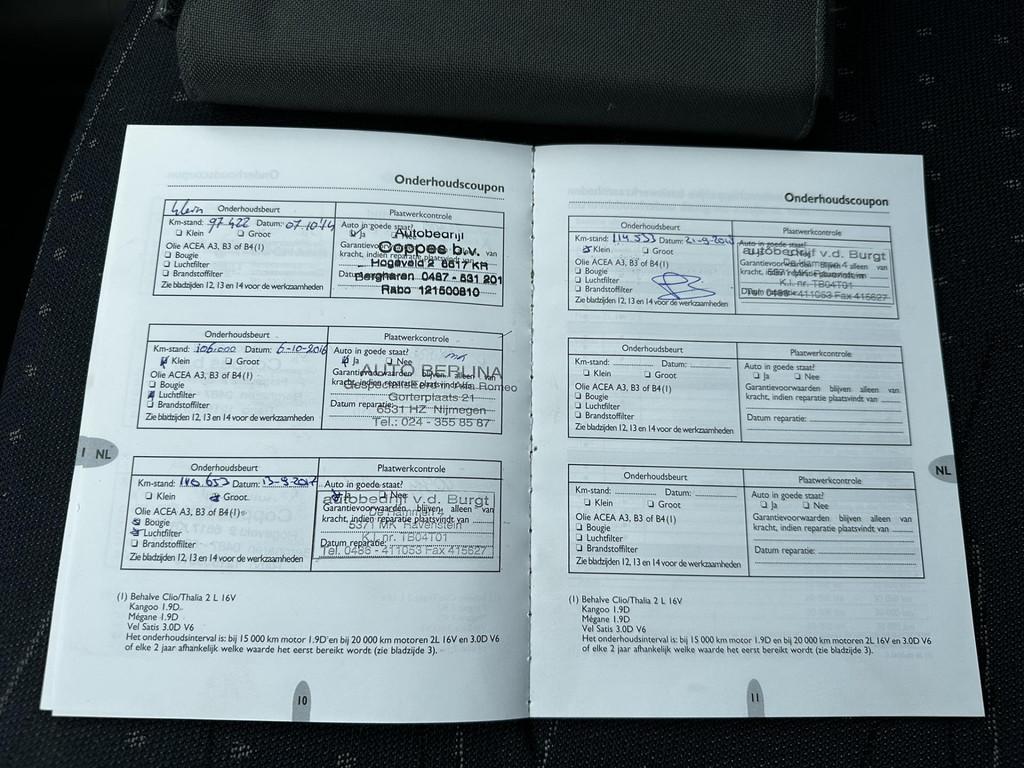 Onderhoudscoupon
Klein Onderhoudsbeurt
Km-stand: 97 422 Datum: 07.10'14
Klein Groot
Olie ACEA A3, B3 of B4(1)
Bougie
Luchtfilter
Brandstoffilter
Zie bladzijden 12, 13 en 14 voor de werkzaamheden
Plaatwerkcontrole
Auto in goede staat?
Ja
Autobedrijf
Coppes b.v.
Hogeveld 2 6617 KR
Bergharen 0487 - 531 201
Rabo 121500810
Onderhoudsbeurt
Km-stand: 106.000 Datum: 6-10-2016
Klein Groot
Olie ACEA A3, B3 of B4(1)
Bougie
Luchtfilter
Brandstoffilter
Zie bladzijden 12, 13 en 14 voor de werkzaamheden
Plaatwerkcontrole
Auto in goede staat?
Ja Nee
AUTO BERLINA
Gespecialiseerd in Alfa Romeo
Gorterplaats 21
6531 HZ Nijmegen
Tel.: 024 - 355 85 87
kracht, indien reparatie plaatsvindt van
Datum reparatie:
I NL
Onderhoudsbeurt
Km-stand: Datum:
Klein Groot
Olie ACEA A3, B3 of B4(1)
Bougie
Luchtfilter
Brandstoffilter
Zie bladzijden 12, 13 en 14 voor de werkzaamheden
Plaatwerkcontrole
Auto in goede staat?
Ja Nee
autobedrijf v.d. Burgt
Garantievoorwaarden blijven alleen van
kracht, indien reparatie plaatsvindt van
5371 MK Ravenstein
K.I. nr. TB04T01
Datum reparatie:
Tel. 0486 - 411053 Fax 415627
(1) Behalve Clio/Thalia 2 L 16V
Kangoo 1.9D
Mégane 1.9D
Vel Satis 3.0D V6
Het onderhoudsinterval is: bij 15 000 km motor 1.9D en bij 20 000 km motoren 2L 16V en 3.0D V6
of elke 2 jaar afhankelijk welke waarde het eerst bereikt wordt (zie bladzijde 3).
10
Onderhoudscoupon
Onderhoudsbeurt
Km-stand: 114.533 Datum:
Klein Groot
Olie ACEA A3, B3 of B4(1)
Bougie
Luchtfilter
Brandstoffilter
Zie bladzijden 12, 13 en 14 voor de werkzaamheden
Plaatwerkcontrole
Auto in goede staat?
autobedrijf v.d. Burgt
Garantievoorwaarden blijven alleen van
5371 MK Ravenstein
K.I. nr. TB04T01
Tel. 0486 - 411053 Fax 415627
Onderhoudsbeurt
Km-stand: Datum:
Klein Groot
Olie ACEA A3, B3 of B4(1)
Bougie
Luchtfilter
Brandstoffilter
Zie bladzijden 12, 13 en 14 voor de werkzaamheden
Plaatwerkcontrole
Auto in goede staat?
Ja Nee
Garantievoorwaarden blijven alleen van
kracht, indien reparatie plaatsvindt van
Datum reparatie:
NL
Onderhoudsbeurt
Km-stand: Datum:
Klein Groot
Olie ACEA A3, B3 of B4(1)
Bougie
Luchtfilter
Brandstoffilter
Zie bladzijden 12, 13 en 14 voor de werkzaamheden
Plaatwerkcontrole
Auto in goede staat?
Ja Nee
Garantievoorwaarden blijven alleen van
kracht, indien reparatie plaatsvindt van
Datum reparatie:
(1) Behalve Clio/Thalia 2 L 16V
Kangoo 1.9D
Mégane 1.9D
Vel Satis 3.0D V6
Het onderhoudsinterval is: bij 15 000 km motor 1.9D en bij 20 000 km motoren 2L 16V en 3.0D V6
of elke 2 jaar afhankelijk welke waarde het eerst bereikt wordt (zie bladzijde 3).
11